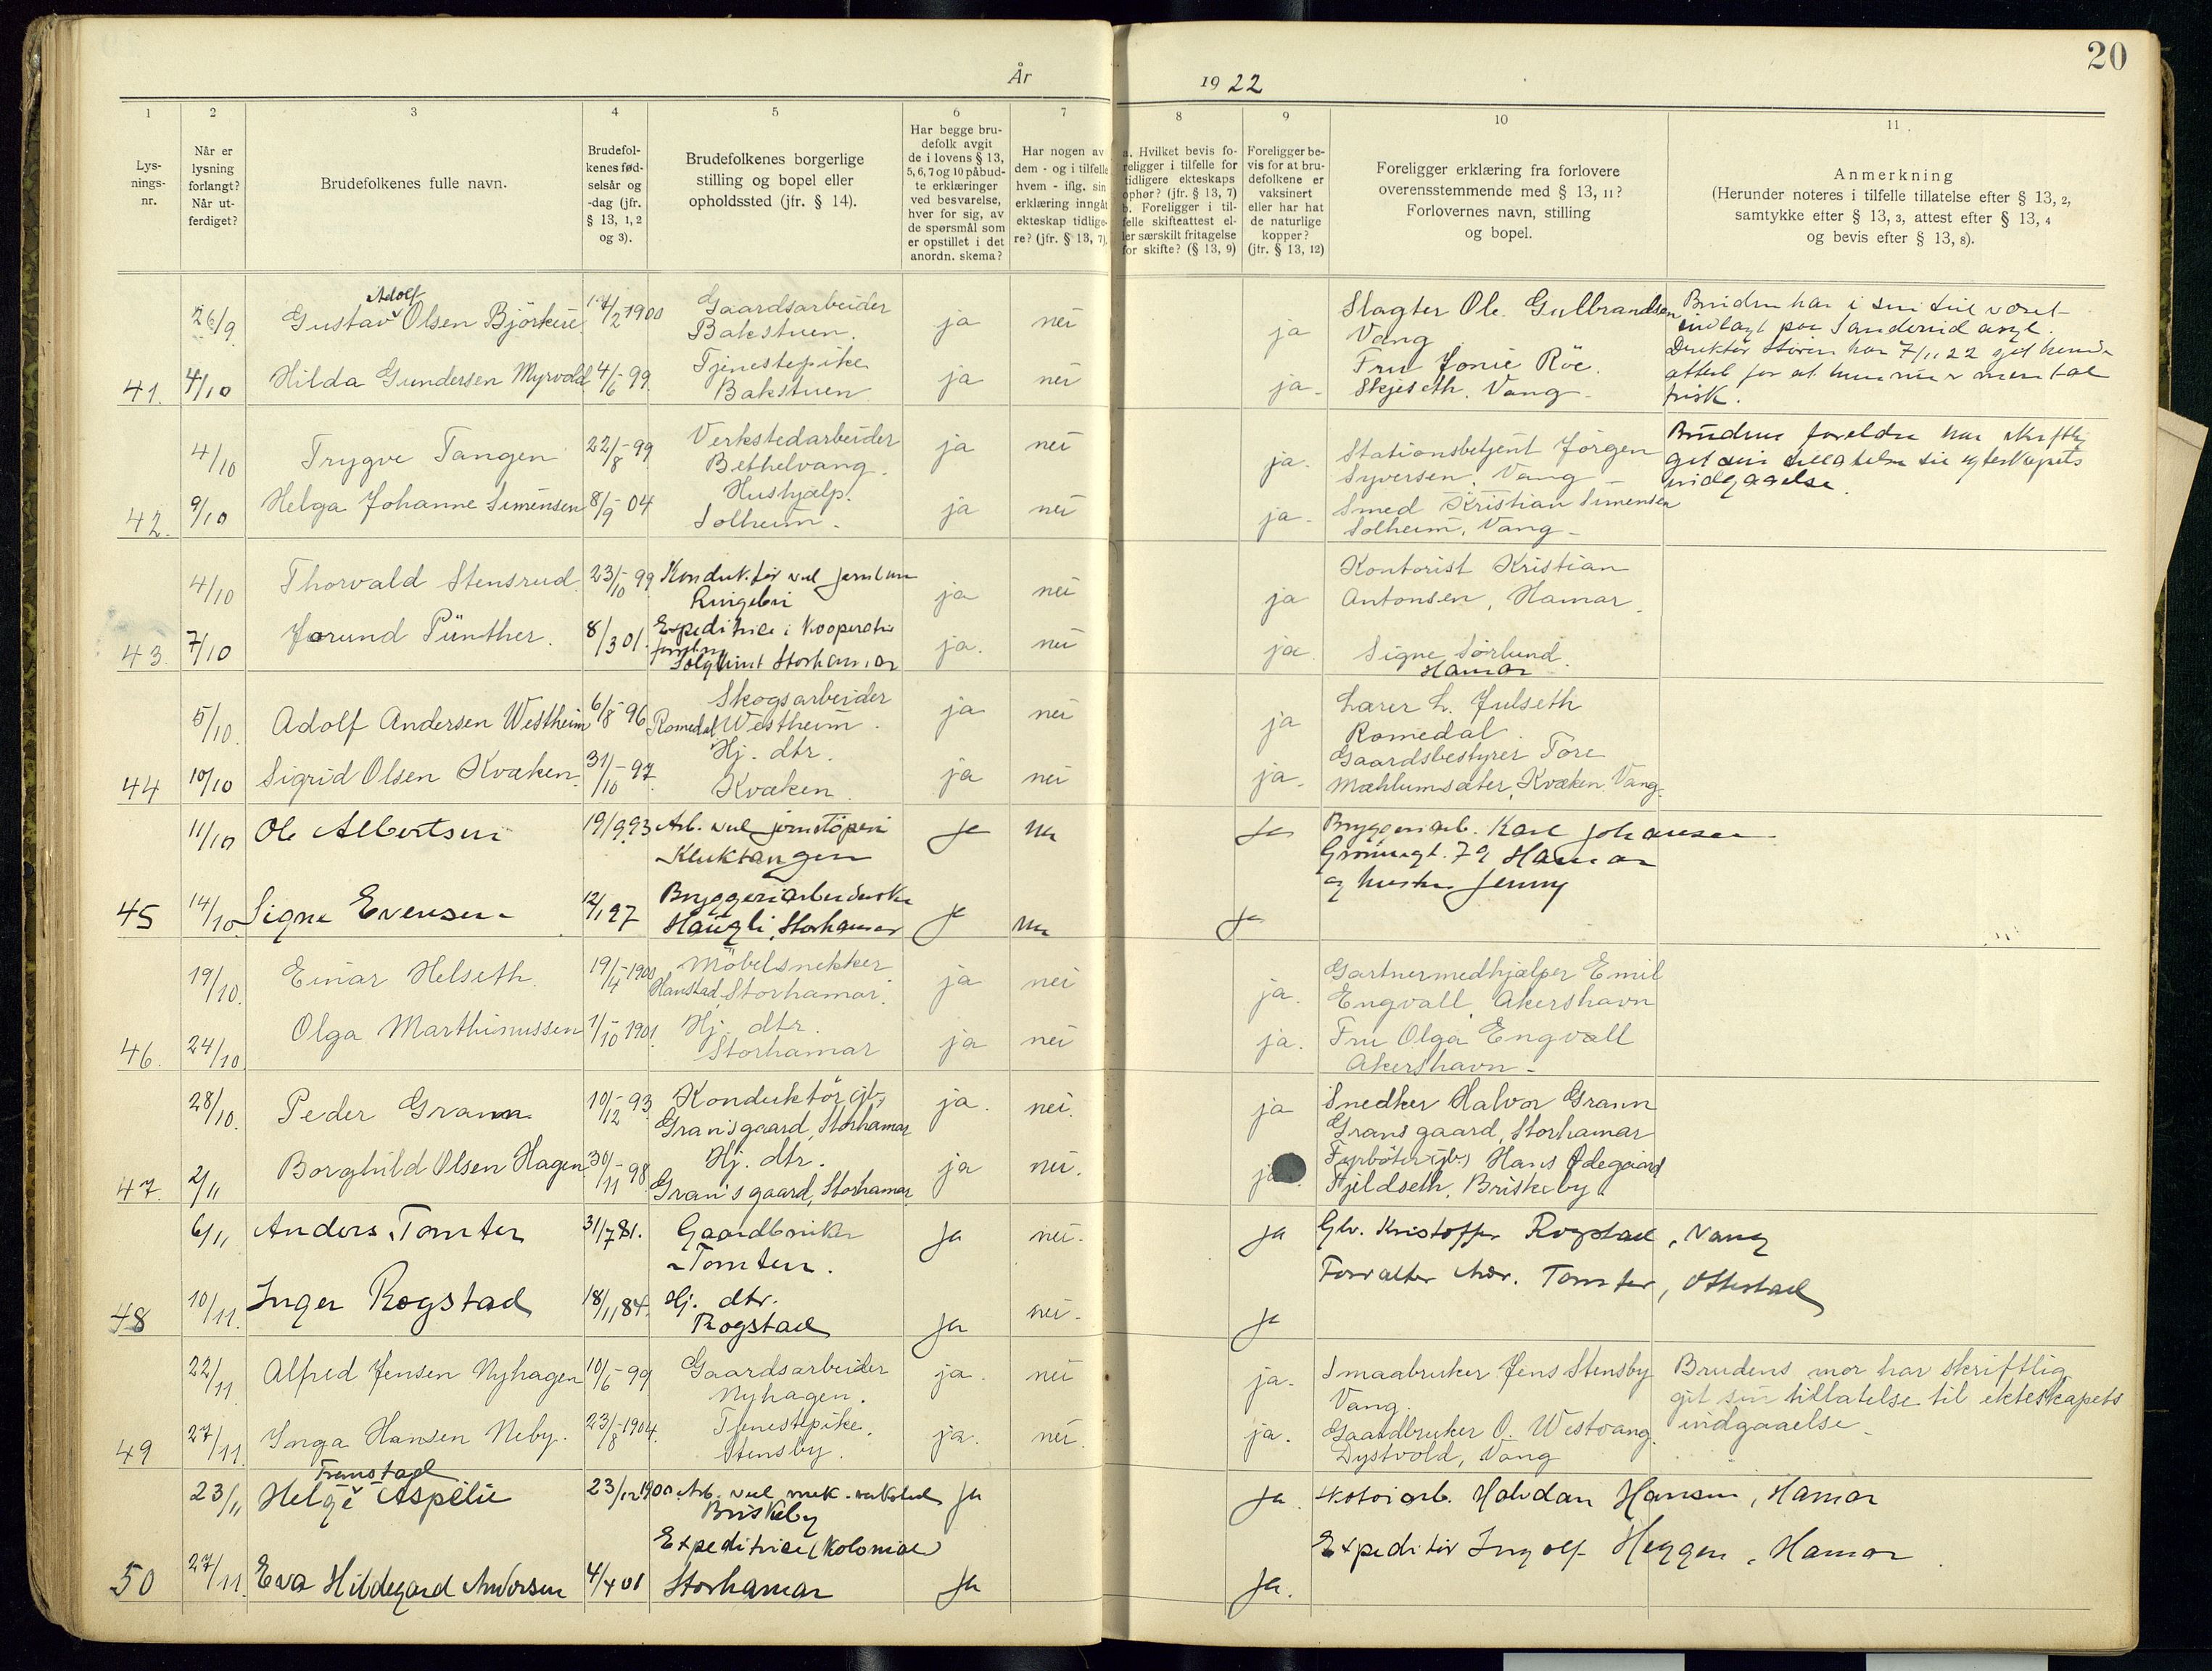 20
År 1922
1 2 3 4 5 6 7 8 9 10 11
Lys-
nings-
nr.
Når er
lysning
forlangt?
Når ut-
ferdiget?
Brudefolkenes fulle navn.
Brudefol-
kenes fød-
selsår og
-dag (jfr.
§ 13, 1, 2
og 3).
Brudefolkenes borgerlige
stilling og bopel eller
opholdssted (jfr. § 14).
Har begge bru-
defolk avgit
de i lovens § 13,
5, 6, 7 og 10 påbud-
te erklæringer
ved besvarelse,
hver for sig, av
de spørsmål som
er opstillet i det
anordn. skema?
Har nogen av
dem - og i tilfelle
hvem - iflg. sin
erklæring inngåt
ekteskap tidlige-
re? (jfr. § 13, 7).
a. Hvilket bevis fo-
religger i tilfelle for
tidligere ekteskaps
ophør? (jfr. § 13, 7)
b. Foreligger i til-
felle skifteattest el-
ler særskilt fritagelse
for skifte? (§ 13, 9)
Foreligger be-
vis for at bru-
defolkene er
vaksinert
eller har hat
de naturlige
kopper?
(jfr. § 13, 12)
Foreligger erklæring fra forlovere
overensstemmende med § 13, 11?
Forlovernes navn, stilling
og bopel.
Anmerkning
(Herunder noteres i tilfelle tillatelse efter § 13, 2,
samtykke efter § 13, 3, attest efter § 13, 4
og bevis efter § 13, 8).
26/9 Gustav Adolf Olsen Björkeie /2-1900 Gaardsarbeider
Bakstuen. ja nei ja Slagter Ole Gulbrandsen
Vang
41. 4/10 Hilda Gundersen Myrvold 4/6-99. Tjenestepike
Bakstuen ja nei ja- Fru Jonie Röe.
Skjeseth. Vang-
Bruden har i sin tid været
indlagt paa Sanderud asyl.
Direktör har 7/11 22 git hende
attest for at hun nu er mental
frisk.
4/10 Trygve Tangen 22/8-99 Verkstedarbeider
Bethelvang. ja nei ja. Stationsbetjent Jörgen
Syversen. Vang
42. 9/10 Helga Johanne Simensen 8/9-04 Hushjælp.
Solheim. ja nei ja- Smed Kristian Simensen
Solheim, Vang-
Brudens foreldre har skriftlig
git sin tillatelse til egteskapets
indgaaelse.
4/10 Thorvald Stensrud 23/10-99 Konduktör ved jernbanen
Ringebu ja nei ja Kontorist Kristian
Antonsen, Hamar.
43. 7/10 Jorund Pünther. 8/3 01. Expeditrice i Kooperativ
Solglimt Storhamar ja. nei ja Signe Sörlund.
Hamar
5/10. Adolf Andersen Westheim 6/8-96 Skogsarbeider
Romedal Westheim. ja nei ja Lærer L. Julseth
Romedal.
44 10/10 Sigrid Olsen Kvæken. 31/10-97. Hj. dtr.
Kvæken. ja nei ja. Gaardsbestyrer Tore
Mæhlumsæter, Kvæken, Vang.
11/10 Ole Albertsen 19/9 93 Arb. ved jernstöperi
Kluktangen Ja nei Ja Bryggeriarb. Karl Johansen
Grönnegt. 79 Hamar
og hustru Jenny
45 14/10 Signe Evensen 12/1 97 Bryggeriarbeiderske
Haugli, Storhamar Ja nei Ja
19/10. Einar Helseth. 19/4-1900 Möbelsnekker
Hanstad, Storhamar. ja nei ja. Gartnermedhjælper Emil
Engvall, Akershavn
46. 24/10. Olga Marthinussen 1/10-1901. Hj. dtr.
Storhamar ja nei ja. Fru Olga Engvall
Akershavn-
28/10. Peder Grann 10/12-93 Konduktör (jb.)
Gran's gaard, Storhamar ja. nei. ja Snedker Halvor Grann
Grans gaard, Storhamar
47. 2/11 Borghild Olsen Hagen 30/11-98. Hj. dtr.
Gran's gaard, Storhamar ja nei. ja. Fyrböter (jb.) Hans Ødegaard
Fjeldseth, Briskeby.
6/11 Anders Tomter 31/7 81. Gaardbruker
Tomter. Ja nei. Ja Gbr. Kristoffer Rogstad, Vang
48 10/11. Inger Rogstad 18/11 84. Hj. dtr.
Rogstad Ja nei. Ja Forvalter Tomter, Ottestad
22/11 Alfred Jensen Nyhagen 10/6-99 Gaardsarbeider
Nyhagen. ja. nei ja. Smaabruker Jens Stensby
Vang.
49 27/11 Inga Hansen Neby. 23/8-1904. Tjenestepike.
Stensby. ja. nei. ja. Gaardbruker O. Westvang.
Dystvold, Vang
Brudens mor har skriftlig
git sin tillatelse til ekteskapets
indgaaelse-
23/11 Helge Tremstad Aspelie 23/12 1900 Arb. ved mek. verksted
Briskeby Ja Ja. Halvdan Hansen, Hamar
50 27/11. Eva Hildegard Andersen 4/4 01 Expeditrice (Kolonial)
Storhamar Ja Ja. Expeditör Ingolf Heggen, Hamar